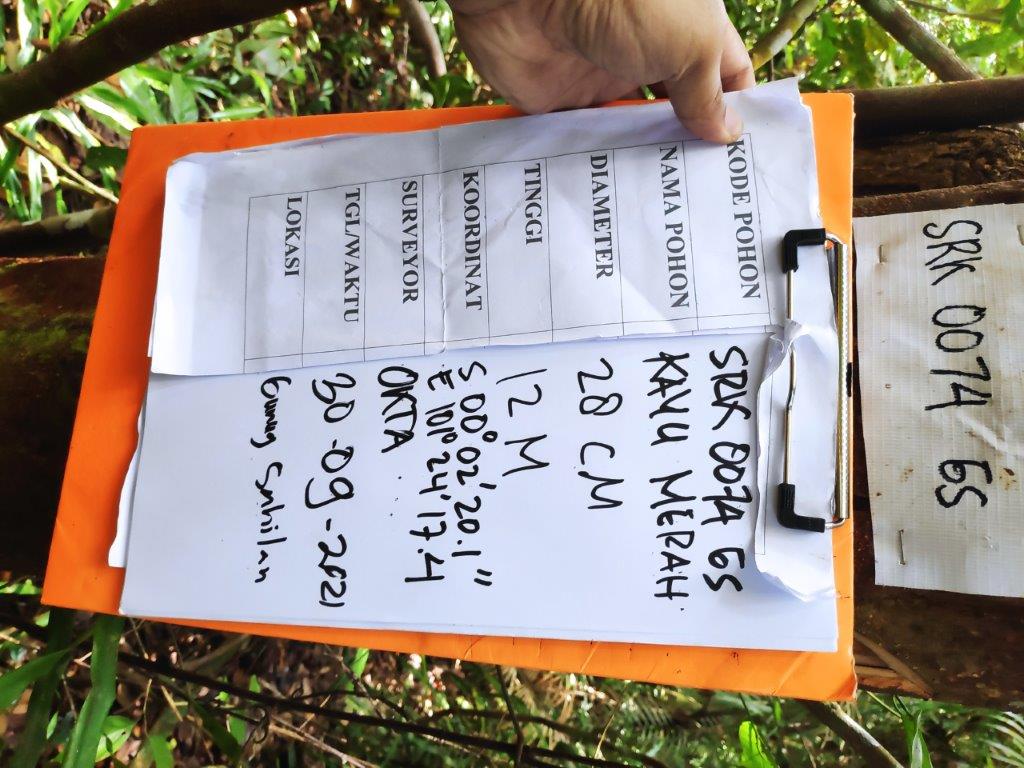 KODE POHON SRK 0074 GS
NAMA POHON KAYU MERAH
DIAMETER 28 CM
TINGGI 12 M
KOORDINAT S 00° 02' 20.1"
E 101° 24' 17.4
SURVEYOR OKTA
TGL/WAKTU 30-09-2021
LOKASI Gunung Sahilan
SRK 0074 GS